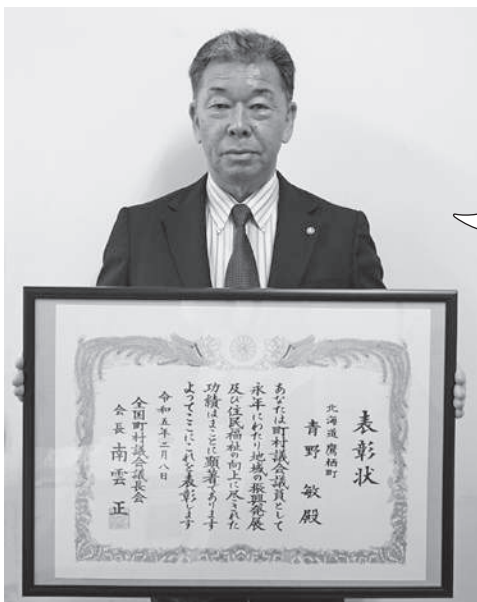 表彰状
北海道鷹栖町
青野敏殿
あなたは町村議会議員として
永年にわたり地域の振興発展
及び住民福祉の向上に尽された
功績はまことに顕著であります
よってここにこれを表彰します
令和五年二月八日
全国町村議会議長会
会長南雲正